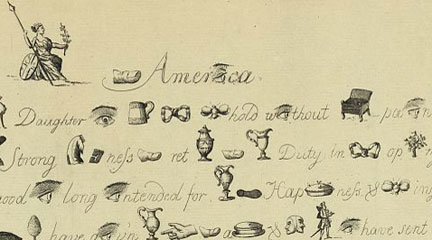 Amer ca.
Daughter hold w thout pa n
Strong ness ret Duty in op
ood long ntended for Hap ness & ing
have a & have sent